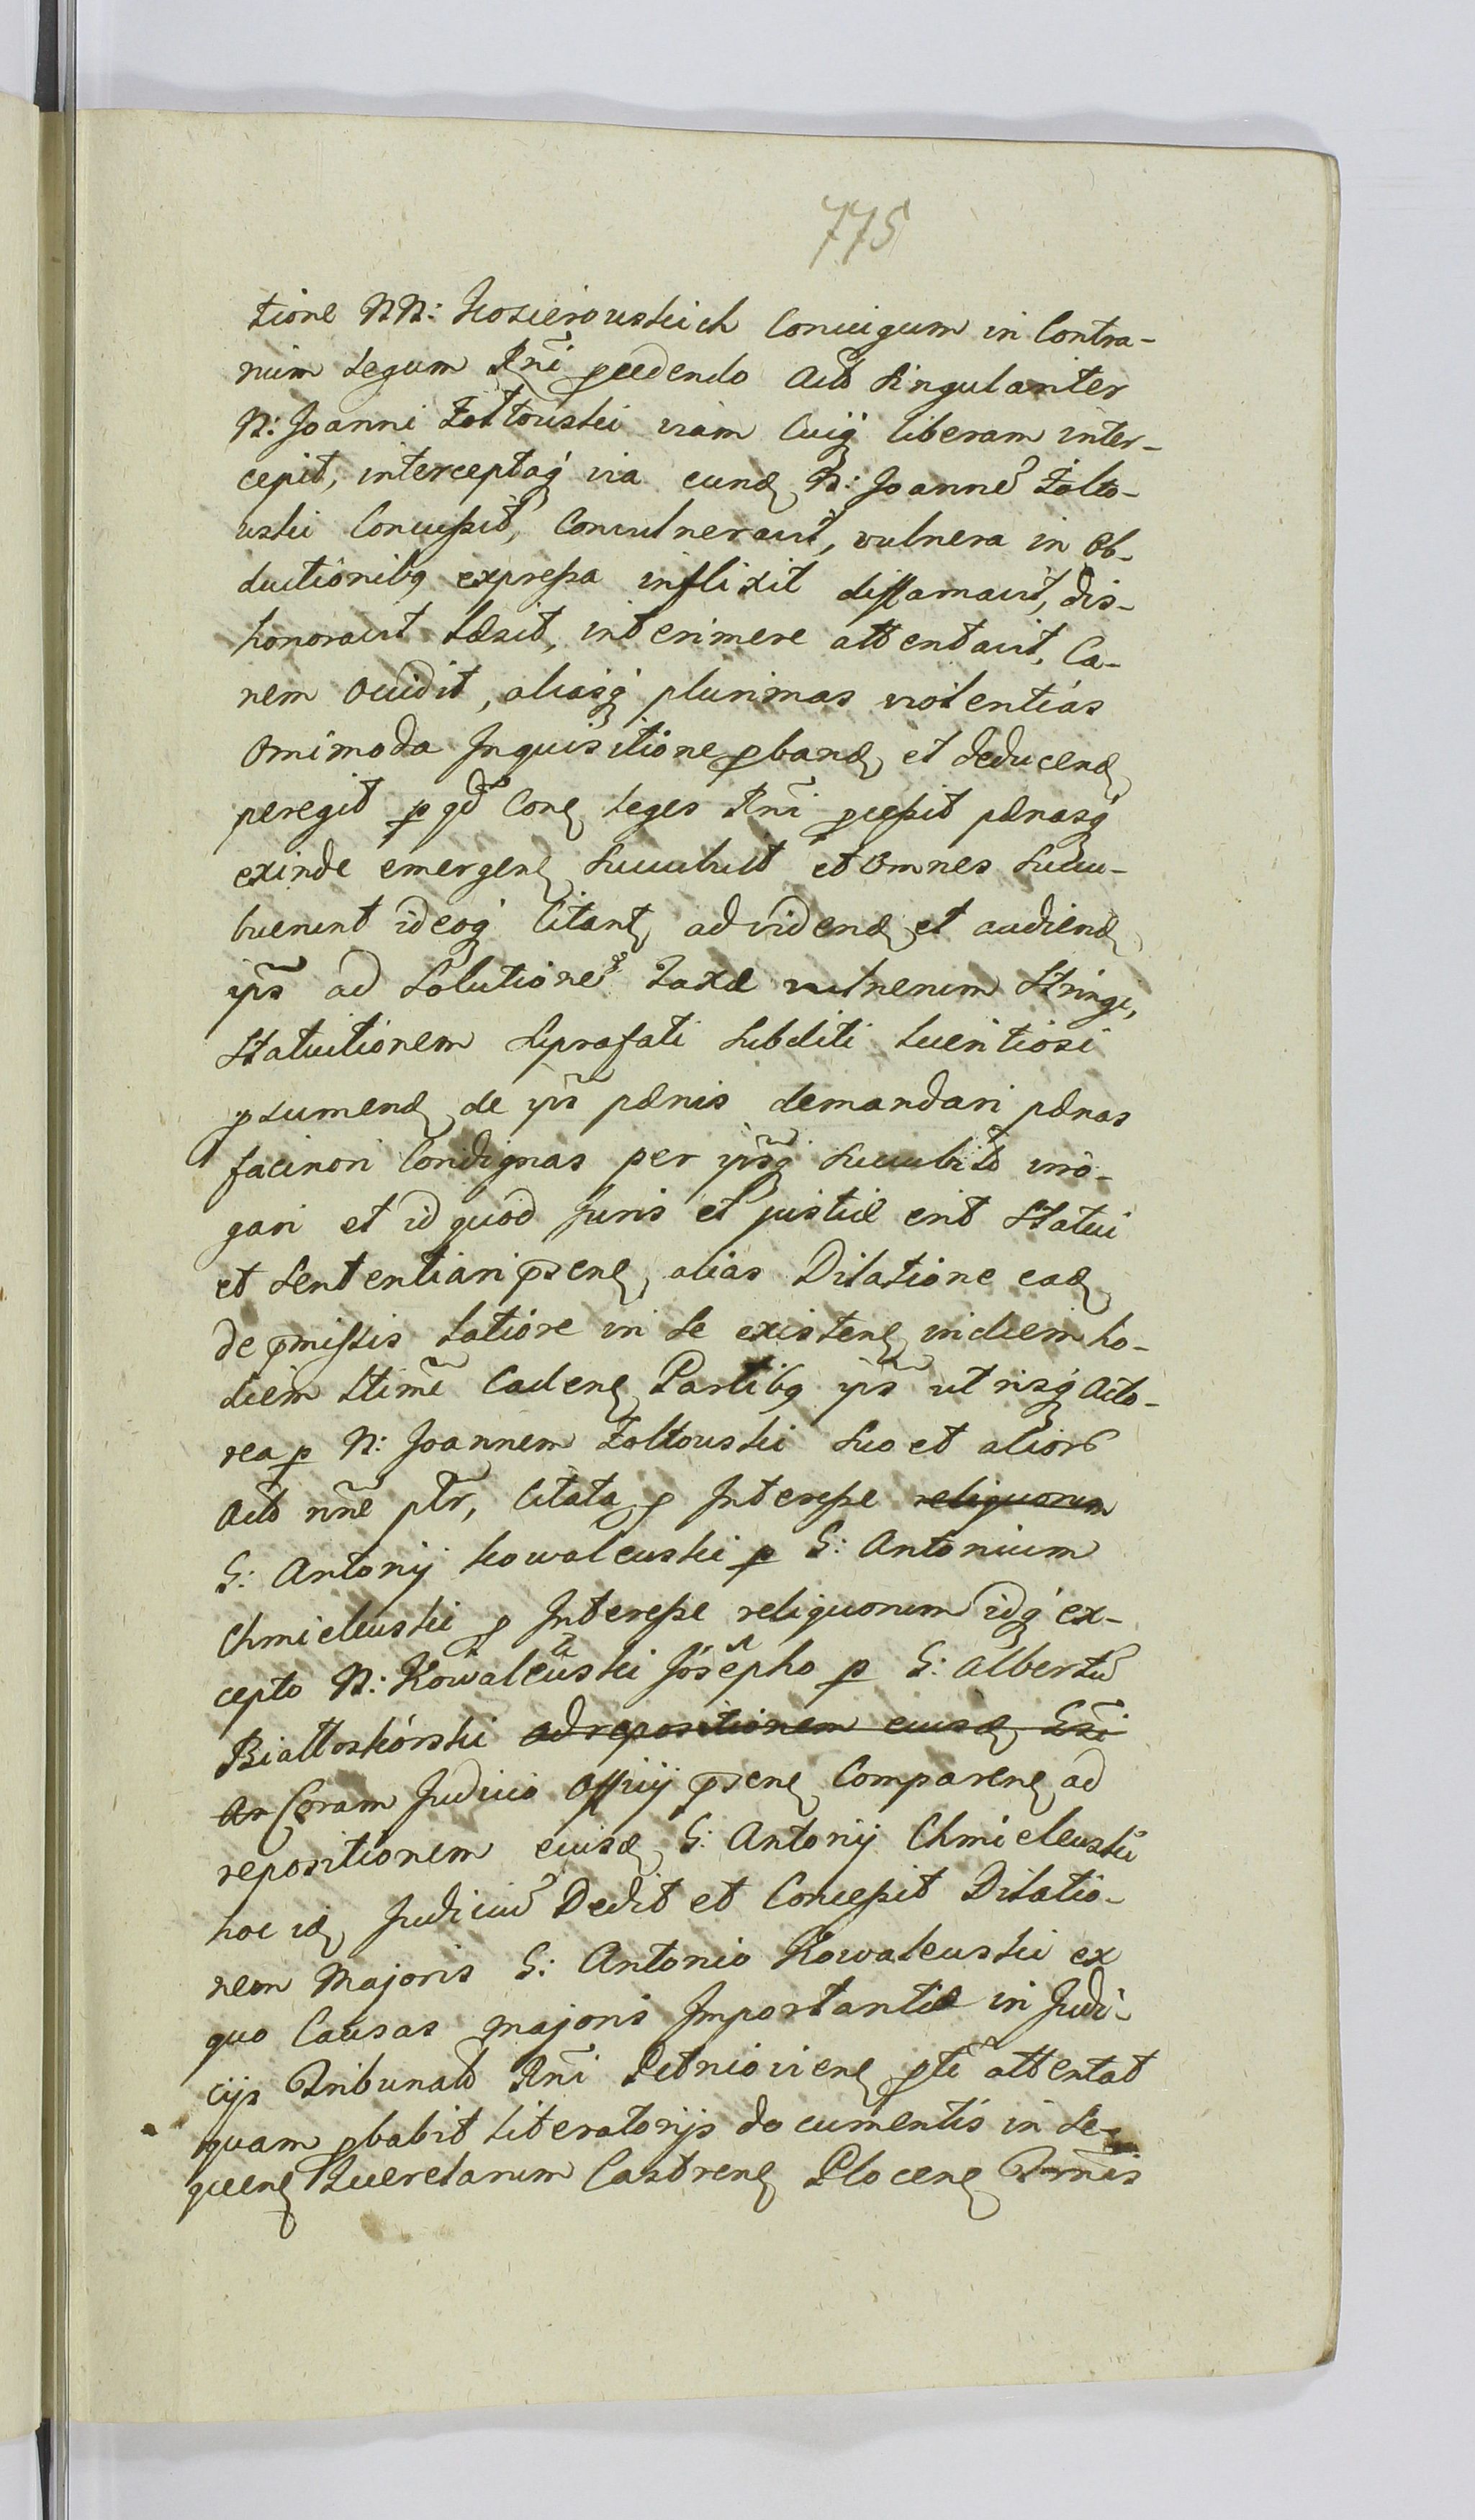 775
tione NN: Kosierowskich Convigum in Contra-
rium Legum Rñi pcedendo Actô Singulariter
N: Joanni Zołtowski viam Cuiq̃ liberam inter-
cepit, interceptaq̃ via eund, N: Joannẽ Zolto-
wski Concussit, Convulneravit, vulnera in Ob-
ductionibq expressa inflixit diffamavit, dis-
honoravit Læsit, interimere attentavit, Ca-
nem Occidit, aliasq̃ plurimas violentias
Omnimoda Inquisitione pband, et deducend,
peregit p qd̃ Con, Leges Rñi pcessit pœnasq̃
exinde emergen, Succubuit et Omnes Succu-
buerunt ideoq̃ Citant, ad vidend, et audiend,
ips̃ ad Solutionẽ Taxæ vulnerum Stringi,
Statuitionem Suprafati Subditi Licentiosi
p sumend, de ips̃ pœnis demandari pœnas
facinori Condignas per ips̃q̃ Succubitô irro-
gari et id quod Juris et justitiæ erit Statui
et Sententiari psen, alias Dilatione ead,
de pmissis Latiore in Se existen, in diem ho-
diern Ltimẽ Caden, Partibq ips̃ utrisq̃ Acto-
rea p N: Joannem Zoltowski Suo et aliorũ
Actô nñe ptr̃, Citata, p Interesse reliquorum
G: Antonij Kowalewski p G: Antonium
Chmielewski p Interesse reliquorum idq̃ ex-
cepto N: Kowalewski Josepho p G: Albertũ
Białłoskórski ad repositionem eiusd, Gsi
An Coram Judicio Officij psen, Comparen, ad
repositionem eiusd, G: Antonij Chmielewski
hoc id, Judiciũ Dedit et Concessit Dilatio-
nem Majoris G: Antonio Kowalewski ex
quo Causas majoris Importantiæ in Judi-
cijs Tribunalô Rñi Petriovien, pti attentat
quam pbabit Literatorijs documentis in Se-
queñ, Querelarum Castren, Plocen, Trm̃is